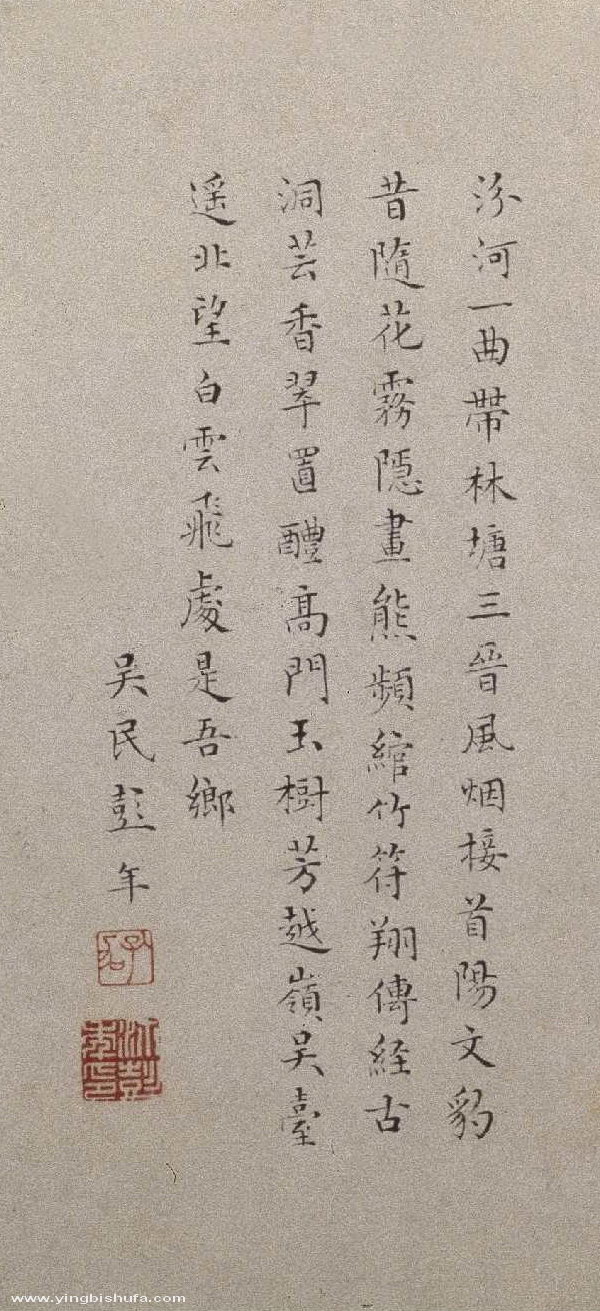 汾河一曲帶林塘三晉風烟接首陽文豹
昔隨花霧隱畫熊頻綰竹符翔傳經古
洞芸香翠置醴高門玉樹芳越嶺吳臺
遥北望白雲飛處是吾鄉
吴民彭年
www.yingbishufa.com